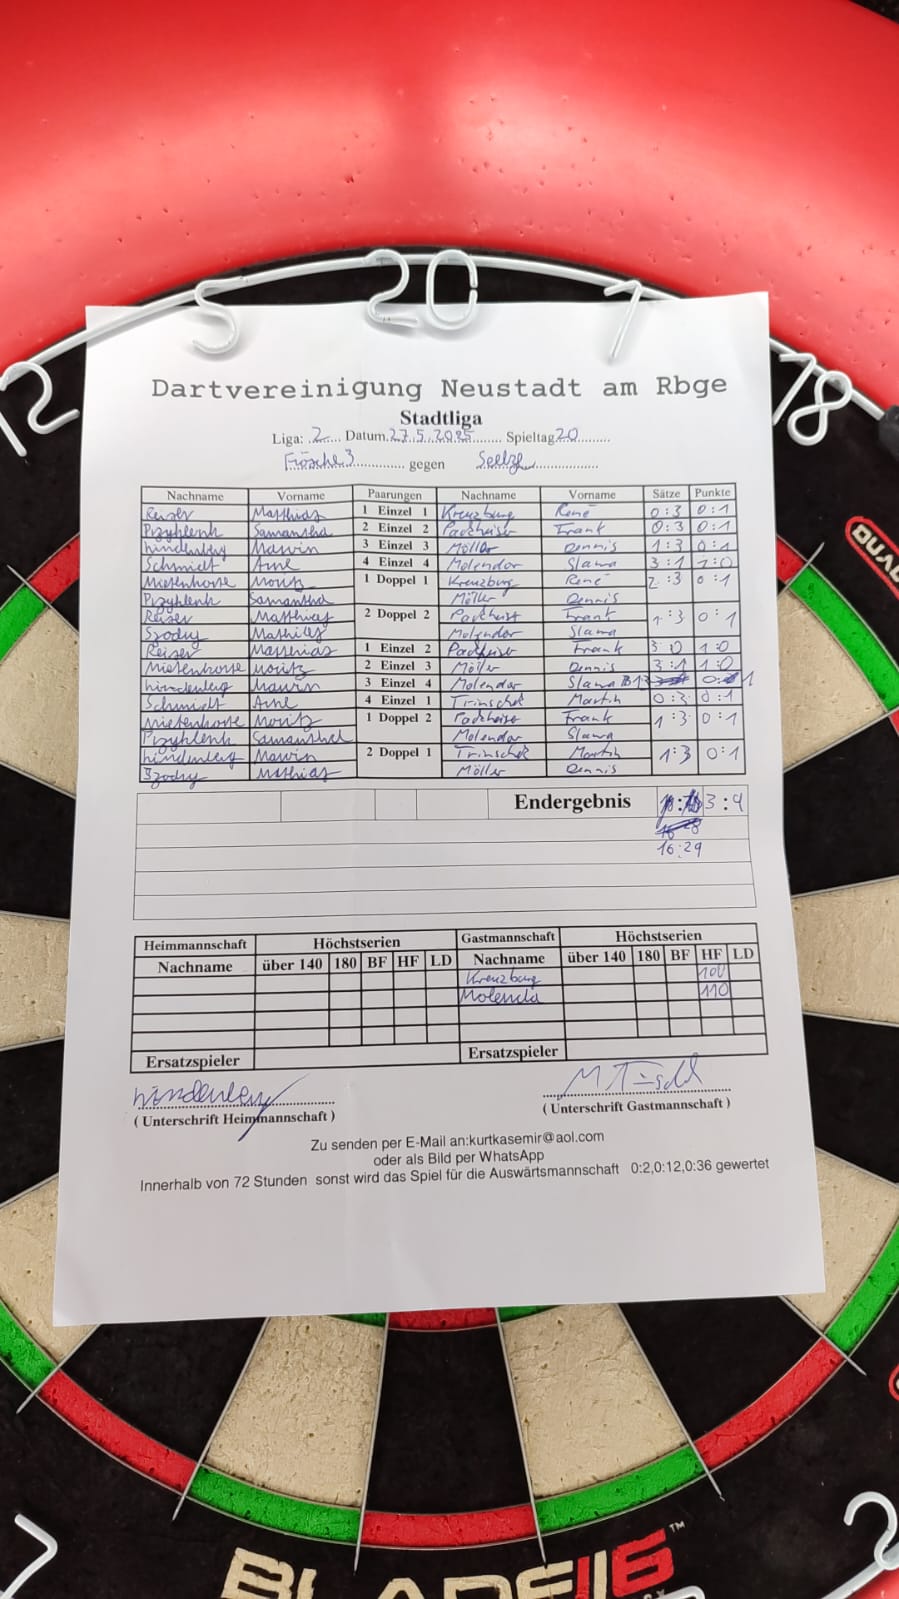 5 20 1
12 18
Dartvereinigung Neustadt am Rbge
Stadtliga
Liga: 2 Datum 27.5.2025 Spieltag 20
Frösche 3 gegen Seelze
Nachname Vorname Paarungen Nachname Vorname Sätze Punkte
Reiser Matthias 1 Einzel 1 Kreuzburg René 0:3 0:1
Przyhlenk Samantha 2 Einzel 2 Padcheiser Frank 0:3 0:1
Lindenberg Marvin 3 Einzel 3 Möller Dennis 1:3 0:1
Schmidt Arne 4 Einzel 4 Molendar Slawa 3:1 1:0
Mietenhorse Moritz 1 Doppel 1 Kreuzburg René 2:3 0:1
Przyhlenk Samantha Möller Dennis
Reiser Matthias 2 Doppel 2 Frank 1:3 0:1
Szodry Mathias Molendar Slawa
Reiser Matthias 1 Einzel 2 Padcheiser Frank 3:0 1:0
Mietenhorse Moritz 2 Einzel 3 Möller Dennis 3:1 1:0
Marvin 3 Einzel 4 Molendar Slawa
Schmidt Arne 4 Einzel 1 Martin 0:3 0:1
Mietenhorse Moritz 1 Doppel 2 Padcheiser Frank 1:3 0:1
Przyhlenk Samantha Molendar Slawa
Marvin 2 Doppel 1 Martin 1:3 0:1
Szodry Mathias Möller Dennis
Endergebnis 3:9
16:29
Heimmannschaft Höchstserien Gastmannschaft Höchstserien
Nachname über 140 180 BF HF LD Nachname über 140 180 BF HF LD
Kreuzburg 100
Molenda 110
Ersatzspieler Ersatzspieler
( Unterschrift Heimmannschaft ) ( Unterschrift Gastmannschaft )
Zu senden per E-Mail an:kurtkasemir@aol.com
oder als Bild per WhatsApp
Innerhalb von 72 Stunden sonst wird das Spiel für die Auswärtsmannschaft 0:2,0:12,0:36 gewertet
7 2
BLADE 6 ™